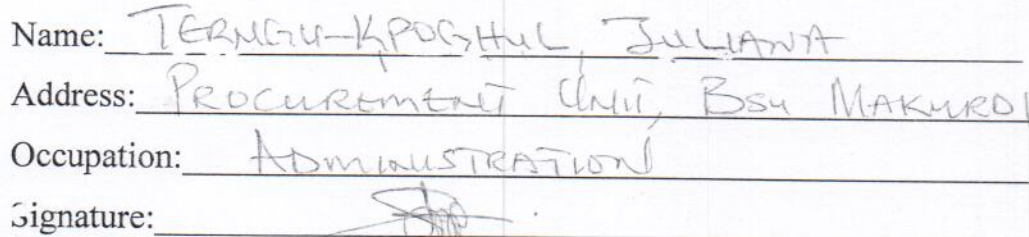 Name: TERNGU-KPOGHUL, JULIANA
Address: PROCUREMENT UNIT, BSU MAKURDI
Occupation: ADMINISTRATION
Signature: